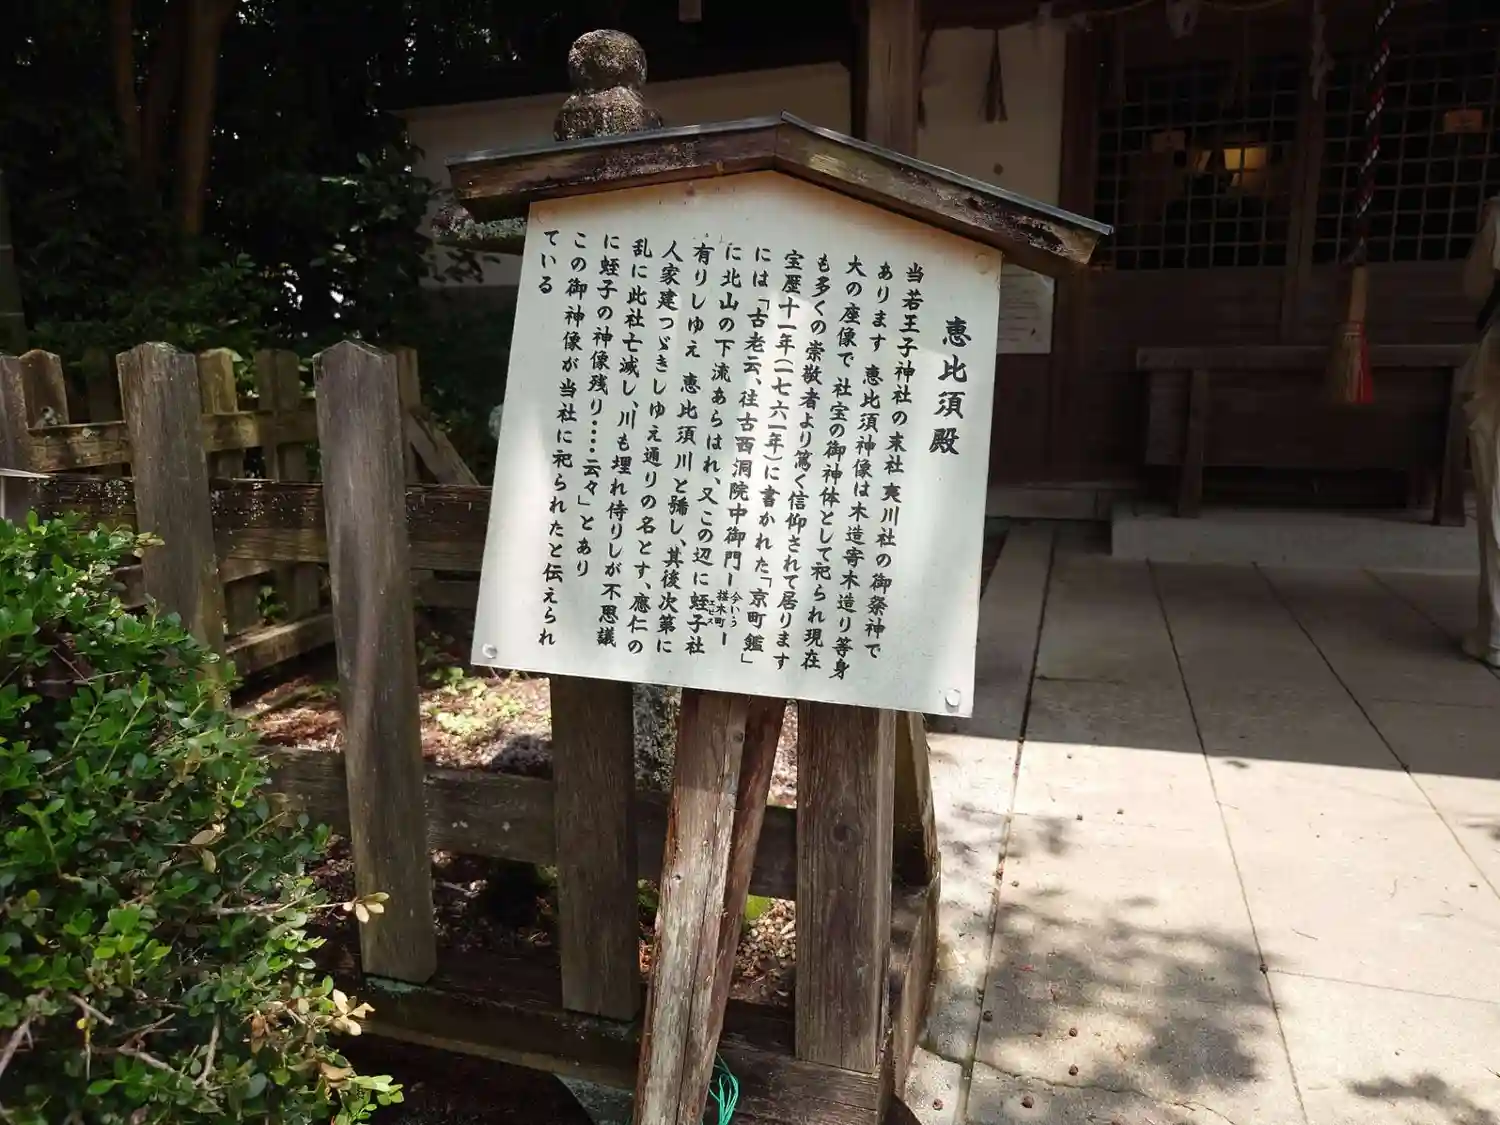 恵比須殿
当若王子神社の末社夷川社の御祭神で
あります 恵比須神像は木造寄木造り等身
大の座像で 社宝の御神体として祀られ現在
も多くの崇敬者より篤く信仰されて居ります
宝歴十一年(一七六一年)に書かれた「京町鑑」
には「古老云、往古西洞院中御門ー今いう椹木町ー
に北山の下流あらはれ、又この辺に蛭子社
エビス
有りしゆえ 恵比須川と號し、其後次第に
人家建つゞきしゆえ通りの名とす、應仁の
乱に此社亡滅し、川も埋れ侍りしが不思議
に蛭子の神像残り・・・・云々」とあり
この御神像が当社に祀られたと伝えられ
ている